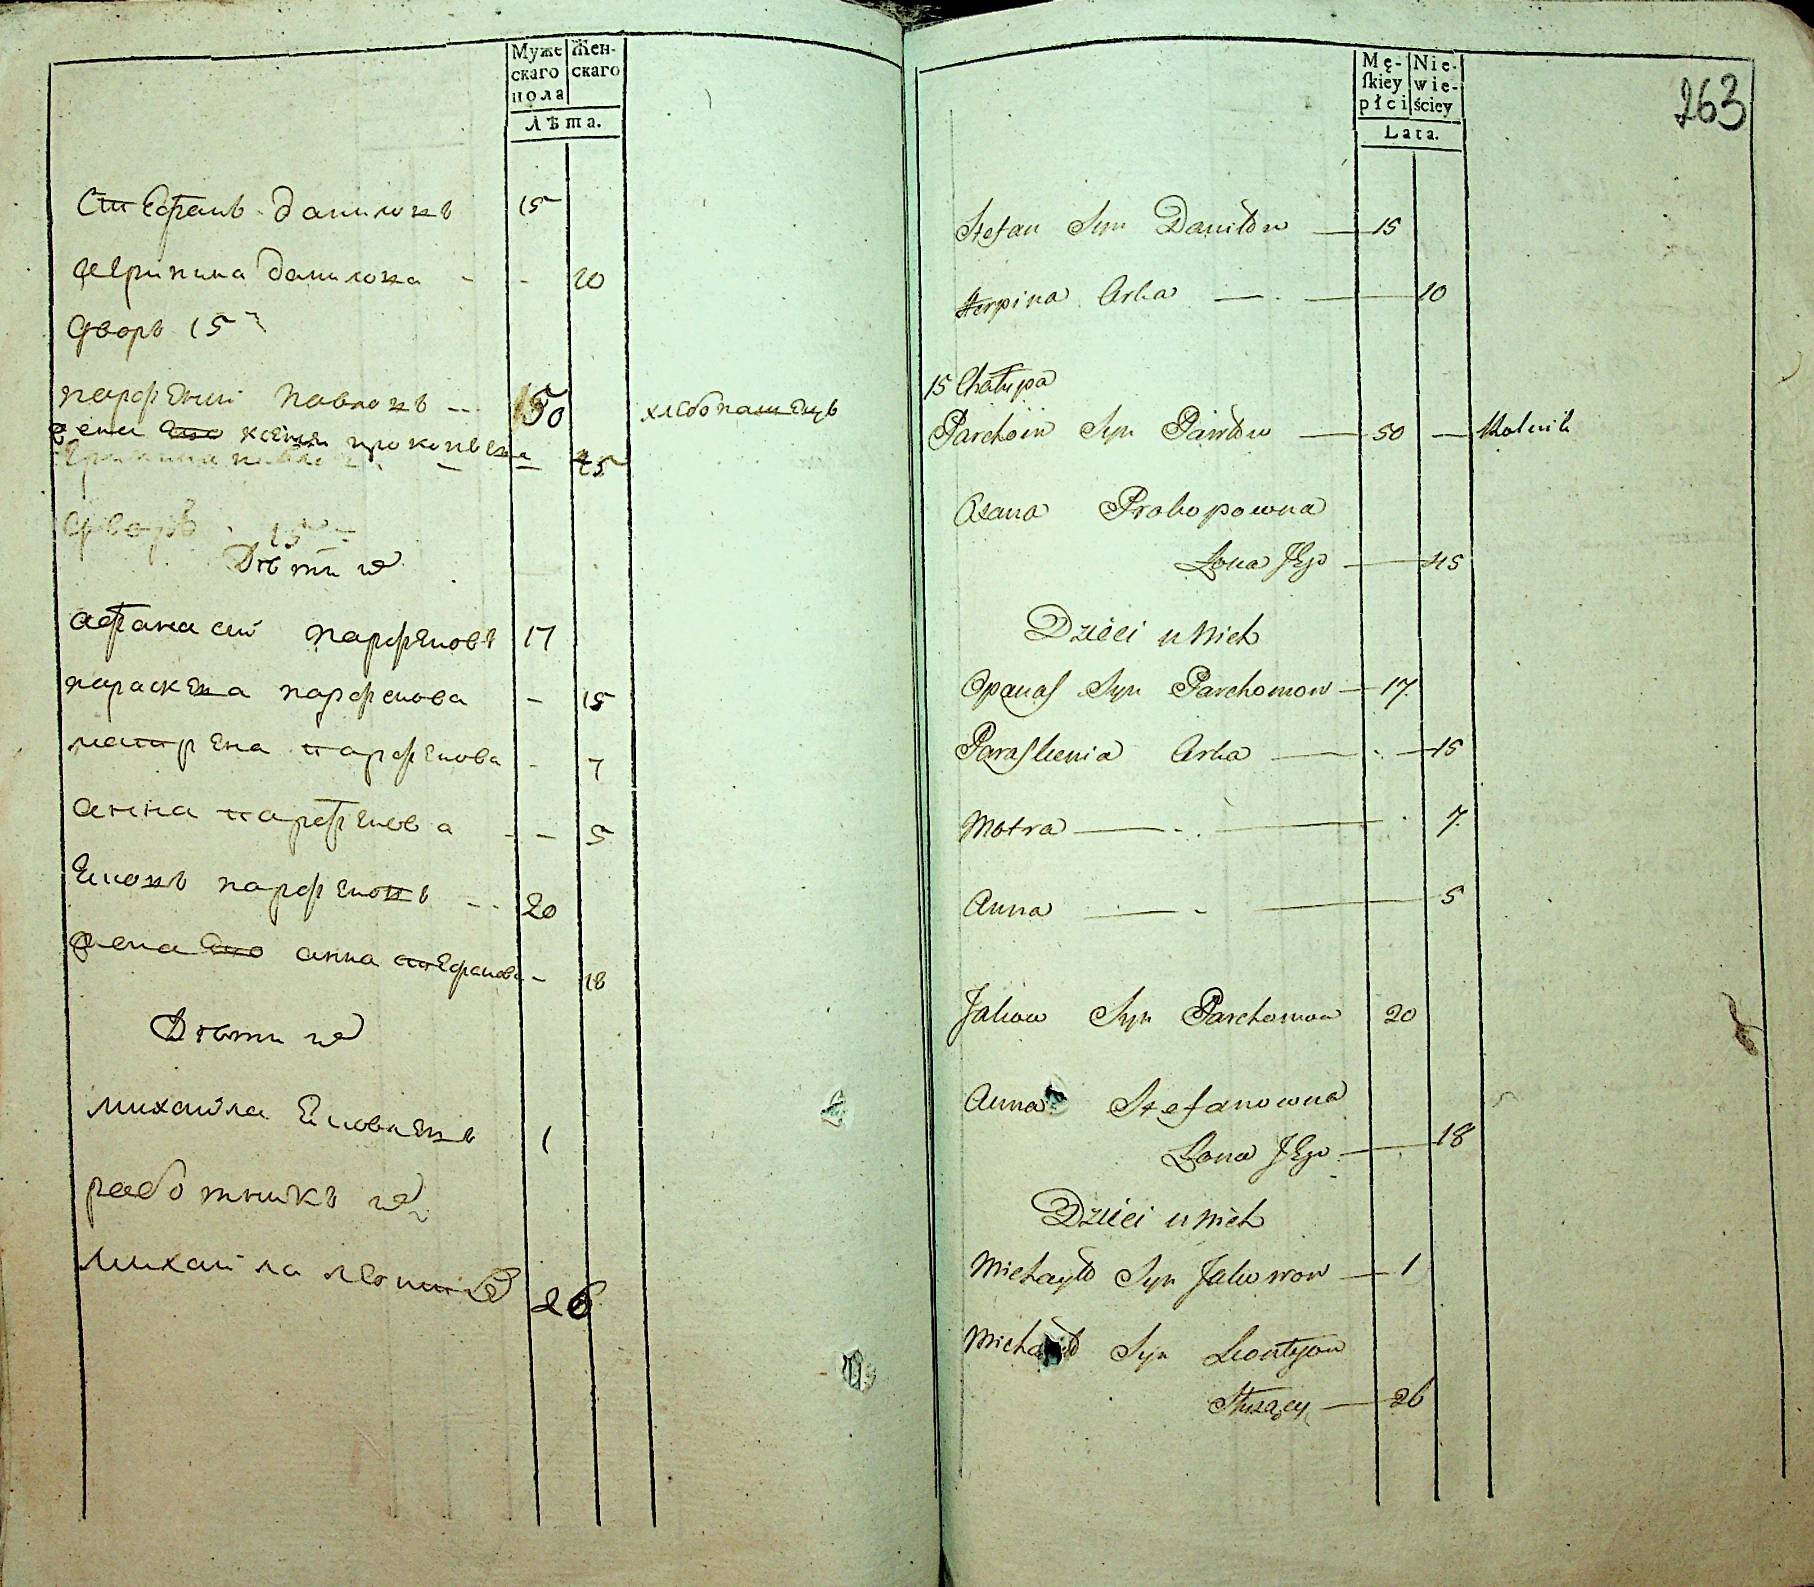 Муже Жен-
скаго скаго
пола
Лѣта.
Стефанъ Даниловъ 15
Агрипина Данилова - - 10
Дворъ 15й
Парфений Павловъ -- 50 хлебопашецъ
жена его Ксения Прокопьева - 45
Дворъ 15
Дѣти их
Афанасий Парфеновъ 17
Параскева Парфенова - 15
Матрена Парфенова - 7
Анна Парфенова - - 5
Парфеновъ -- 20
жена его Анна Стефанова - 18
Дѣти их
Михайла 1
работникъ их
Михайла 26
263
Mę- Nie-
ſkiey wie-
płci ściey
Lata.
Stefan Syn Daniłow 15
Corka 10
15 Chałupa
Parchom Syn Pawłow 50 Rolnik
Oxana Prokopowna
Żona Jego 45
Dzieci u Nich
Opanas Syn Parchomow 17
Paraskewia Corka 15
Motra 7
Anna 5
Jakow Syn Parchomow 20
Anna Stefanowna
Żona Jego 18
Dzieci u Nich
Michayło Syn Jakowow 1
Michayło Syn Leontyow
Służący 26